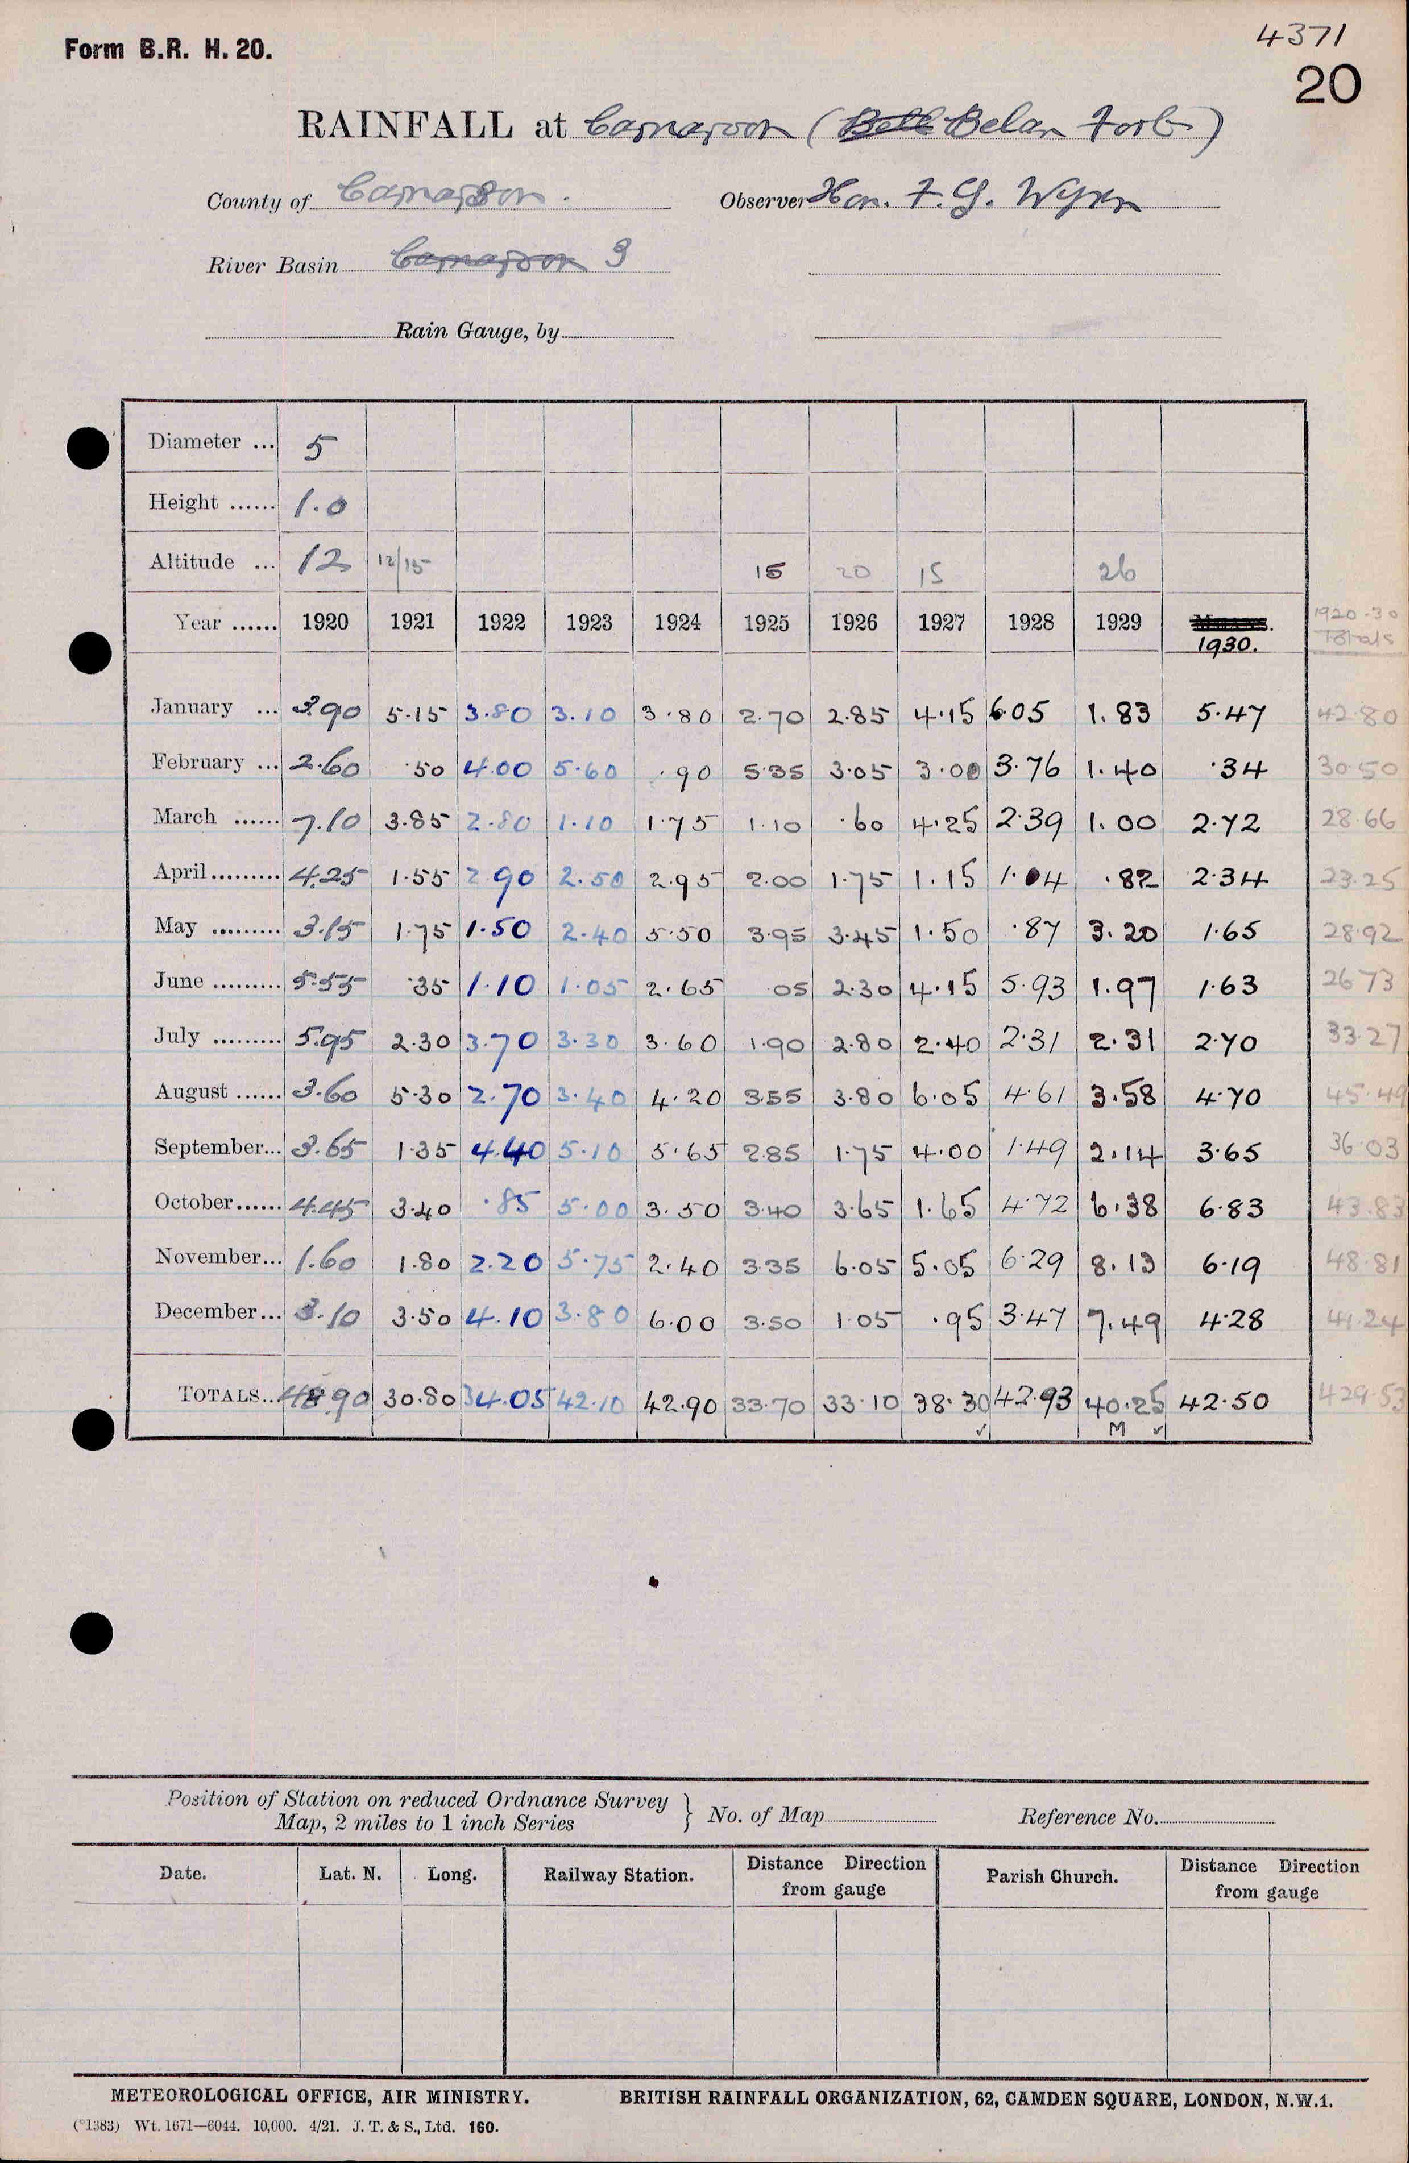 4371
Form B.R. H. 20.
20
RAINFALL at Carnarvon (Belan Fort)
County of Carnarvon. Observer Hon. F. G. Wynn
River Basin Carnarvon 3
Rain Gauge, by
Diameter ... 5
Height ...... 1.0
Altitude ... 12 12/15 15 20 15 26
Year ...... 1920 1921 1922 1923 1924 1925 1926 1927 1928 1929 1930. 1920-30 Totals
January ... 3.90 5.15 3.80 3.10 3.80 2.70 2.85 4.15 6.05 1.83 5.47 42.80
February ... 2.60 .50 4.00 5.60 .90 5.35 3.05 3.00 3.76 1.40 .34 30.50
March ...... 7.10 3.85 2.80 1.10 1.75 1.10 .60 4.25 2.39 1.00 2.72 28.66
April ......... 4.25 1.55 2.90 2.50 2.95 2.00 1.75 1.15 1.04 .82 2.34 23.25
May ......... 3.15 1.75 1.50 2.40 5.50 3.95 3.45 1.50 .87 3.20 1.65 28.92
June ......... 5.55 .35 1.10 1.05 2.65 .05 2.30 4.15 5.93 1.97 1.63 26.73
July ......... 5.95 2.30 3.70 3.30 3.60 1.90 2.80 2.40 2.31 2.31 2.70 33.27
August ...... 3.60 5.30 2.70 3.40 4.20 3.55 3.80 6.05 4.61 3.58 4.70 45.49
September... 3.65 1.35 4.40 5.10 5.65 2.85 1.75 4.00 1.49 2.14 3.65 36.03
October...... 4.45 3.40 .85 5.00 3.50 3.40 3.65 1.65 4.72 6.38 6.83 43.83
November... 1.60 1.80 2.20 5.75 2.40 3.35 6.05 5.05 6.29 8.13 6.19 48.81
December... 3.10 3.50 4.10 3.80 6.00 3.50 1.05 .95 3.47 7.49 4.28 41.24
TOTALS... 48.90 30.80 34.05 42.10 42.90 33.70 33.10 38.30 42.93 40.25 42.50 429.53
✓ M ✓
Position of Station on reduced Ordnance Survey
Map, 2 miles to 1 inch Series } No. of Map Reference No.
Date. Lat. N. Long. Railway Station. Distance from gauge Direction Parish Church. Distance from gauge Direction
METEOROLOGICAL OFFICE, AIR MINISTRY. BRITISH RAINFALL ORGANIZATION, 62, CAMDEN SQUARE, LONDON, N.W.1.
(*1383) Wt. 1671—6044. 10,000. 4/21. J. T. & S., Ltd. 160.